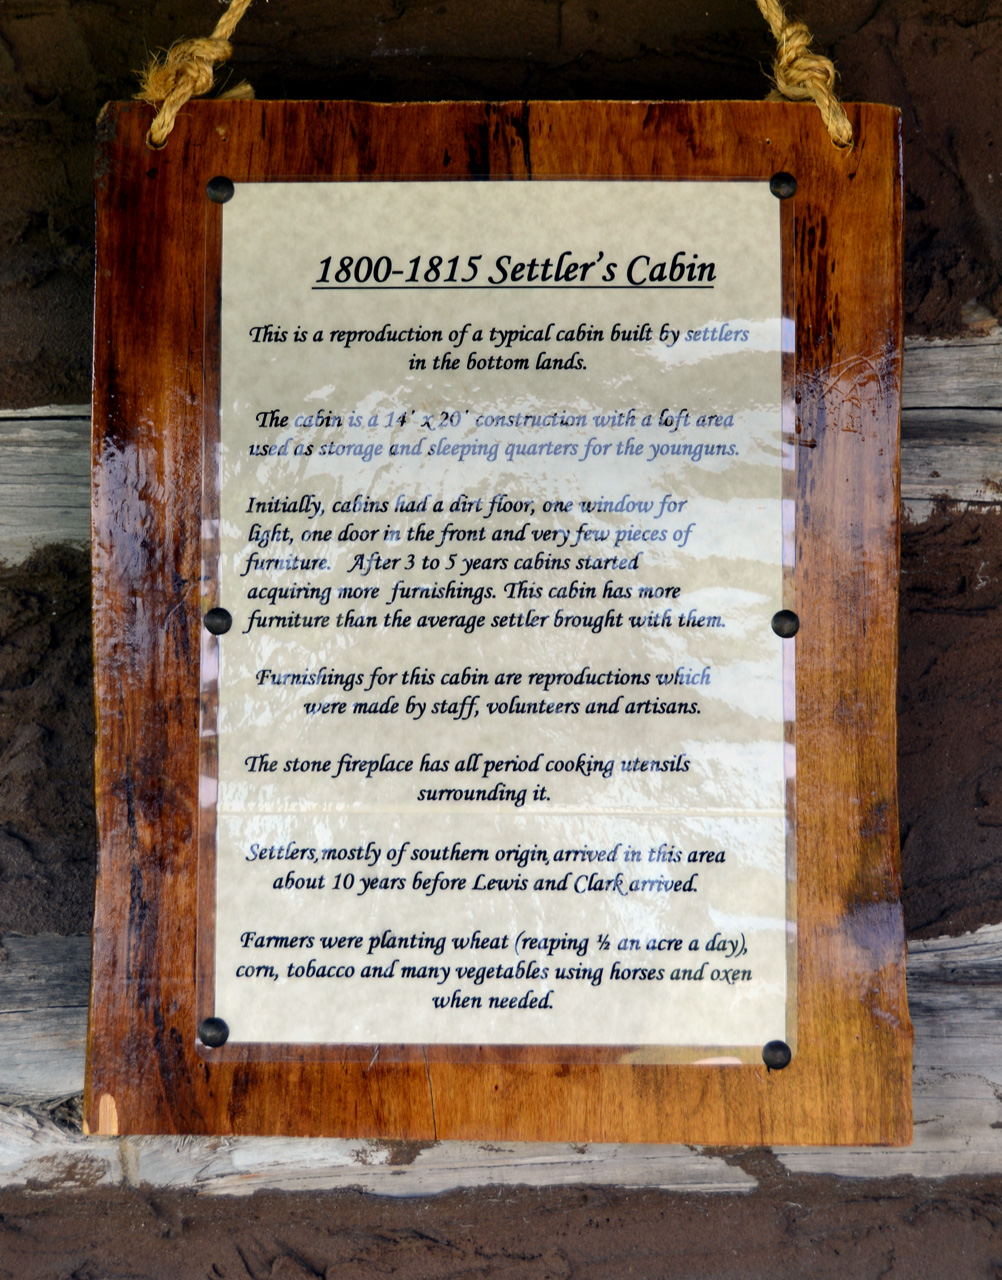 1800-1815 Settler's Cabin
This is a reproduction of a typical cabin built by settlers
in the bottom lands.
The cabin is a 14' x 20' construction with a loft area
used as storage and sleeping quarters for the younguns.
Initially, cabins had a dirt floor, one window for
light, one door in the front and very few pieces of
furniture. After 3 to 5 years cabins started
acquiring more furnishings. This cabin has more
furniture than the average settler brought with them.
Furnishings for this cabin are reproductions which
were made by staff, volunteers and artisans.
The stone fireplace has all period cooking utensils
surrounding it.
Settlers, mostly of southern origin, arrived in this area
about 10 years before Lewis and Clark arrived.
Farmers were planting wheat (reaping ½ an acre a day),
corn, tobacco and many vegetables using horses and oxen
when needed.